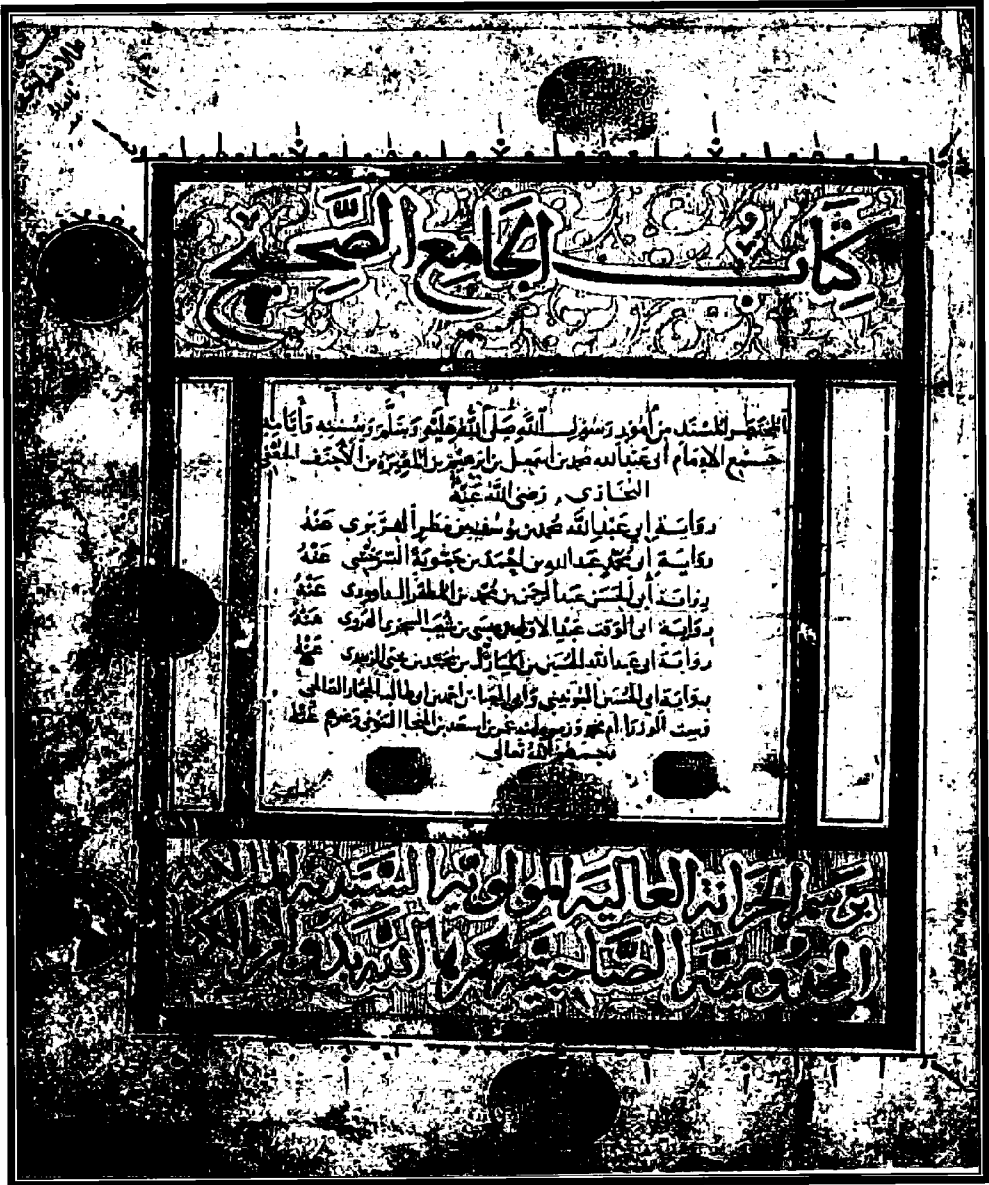 كتاب الجامع الصحيح
المختصر المسند من أمور رسول الله صلى الله عليه وسلم وسننه وأيامه
جمع الإمام أبي عبد الله محمد بن اسمعيل بن ابرهيم بن المغيرة بن الأحنف الجعفي
البخاري رضي الله عنه
رواية أبي عبد الله محمد بن يوسف بن مطر الفربري عنه
رواية أبي محمد عبد الله بن أحمد بن حمويه السرخسي عنه
رواية أبي الحسن عبد الرحمن بن محمد بن المظفر الداوودي عنه
رواية أبي الوقت عبد الأول بن عيسى بن شعيب السجزي الهروي عنه
رواية أبي عبد الله الحسين بن المبارك بن محمد بن يحيى الزبيدي عنه
رواية أبي الحسين اليونيني وأبي العباس احمد بن أبي طالب الحجار الصالحي
وست الوزراء أم محمد وزيرة ابنة عمر بن أسعد بن المنجا التنوخي وغيرهم عنه
رحمهم الله تعالى
برسم الخزانة العالية المولوية السيدية المالكية
المخدومية الصاحبية عمرها الله